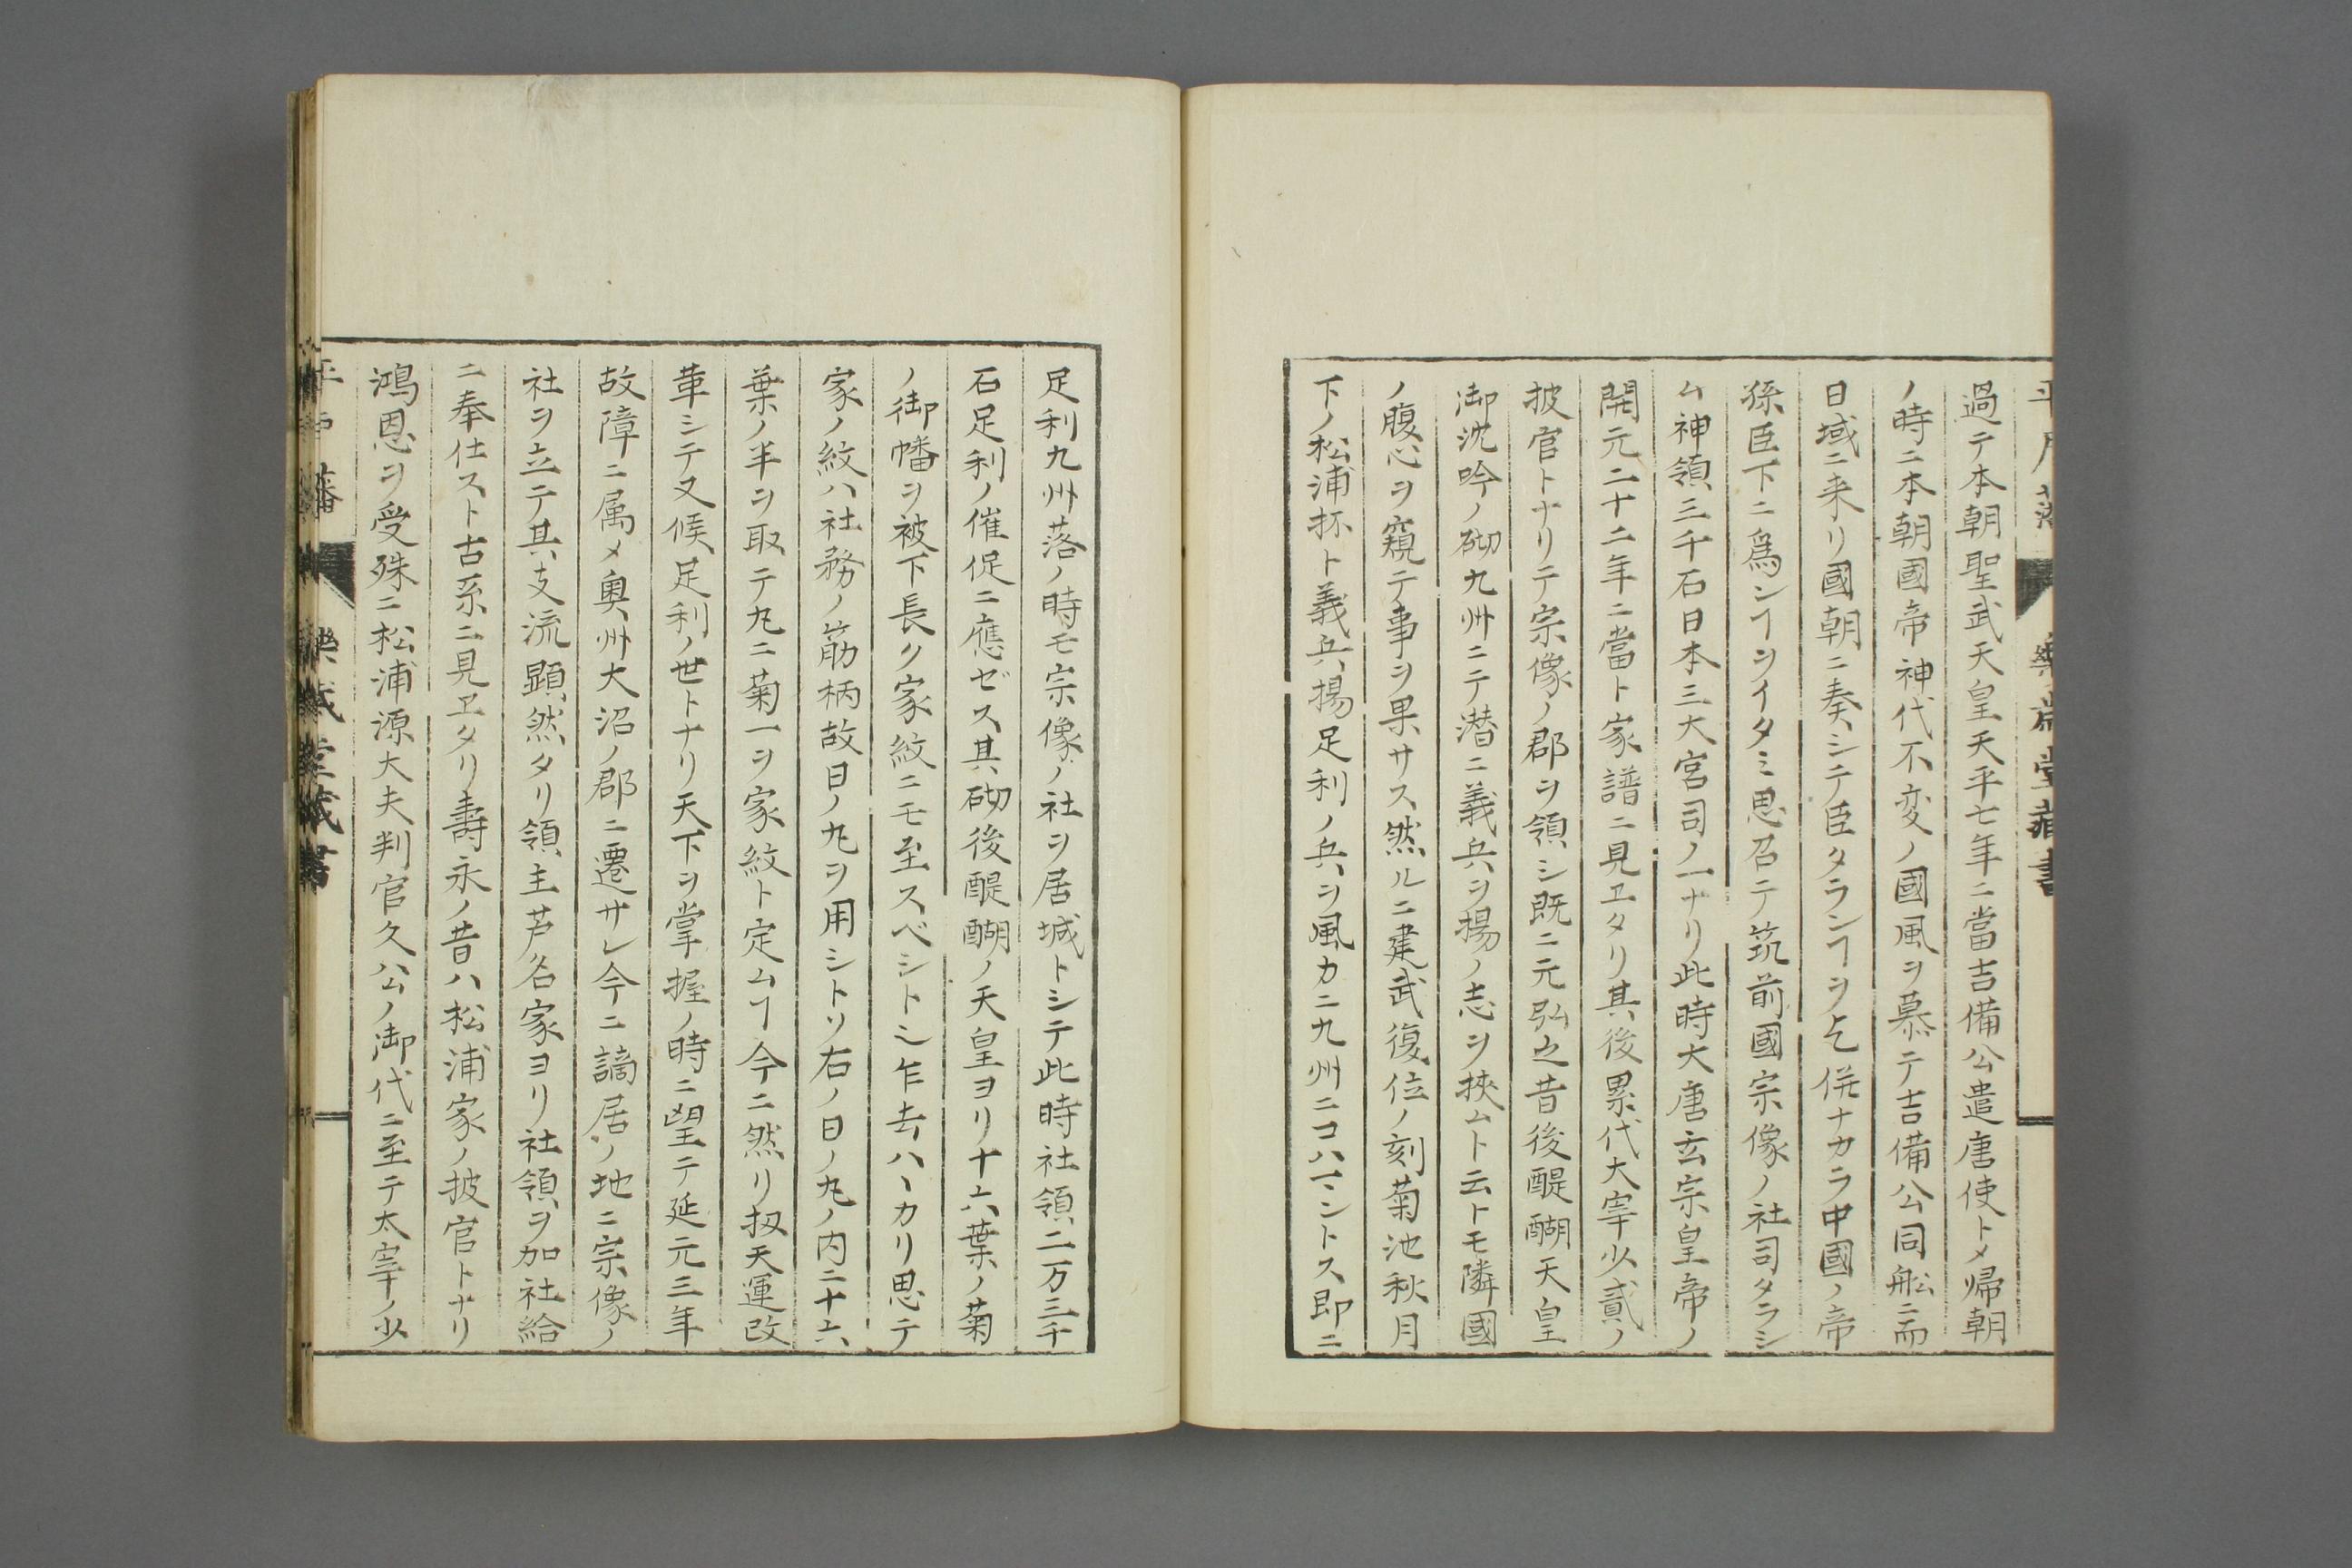 過テ本朝聖武天皇天平七年ニ當吉備公遣唐使トメ帰朝
ノ時ニ本朝國帝神代不変ノ國風ヲ慕テ吉備公同舩ニ而
日域ニ来リ國朝ニ奏シテ臣タランヿヲ乞併ナカラ中國ノ帝
孫臣下ニ為ンヿヲイタミ思召テ筑前國宗像ノ社司タラシ
ム神領三千石日本三大宮司ノ一ナリ此時大唐玄宗皇帝ノ
開元二十二年ニ當ト家譜ニ見エタリ其後累代大宰少貳ノ
披官トナリテ宗像ノ郡ヲ領シ既ニ元弘之昔後醍醐天皇
御沈吟ノ砌九州ニテ潜ニ義兵ヲ揚ノ志ヲ挾ムト云トモ隣國
ノ腹心ヲ窺テ事ヲ果サス然ルニ建武復位ノ刻菊池秋月
下ノ松浦抔ト義兵揚足利ノ兵ヲ風カ二九州ニコハマントス即ニ
足利九州落ノ時モ宗像ノ社ヲ居城トシテ此時社領二万三千
石足利ノ催促ニ應ゼス其砌後醍醐ノ天皇ヨリ十六葉ノ菊
ノ御幡ヲ被下長ク家紋ニモ至スベシト乍去ハヽカリ思テ
家ノ紋ハ社務ノ筋柄故日ノ丸ヲ用シトソ右ノ日ノ丸ノ内ニ十六
葉ノ半ヲ取テ丸ニ菊一ヲ家紋ト定ムヿ今ニ然リ扨天運改
革シテ又候足利ノ世トナリ天下ヲ掌握ノ時ニ望テ延元三年
故障ニ属メ奥州大沼ノ郡ニ遷サレ今ニ謫居ノ地ニ宗像ノ
社ヲ立テ其支流顕然タリ領主芦名家ヨリ社領ヲ加社給
ニ奉仕スト古系ニ見ヱタリ壽永ノ昔ハ松浦家ノ披官トナリ
鴻恩ヲ受殊ニ松浦源大夫判官久公ノ御代ニ至テ太宰ノ少
樂歳堂藏書